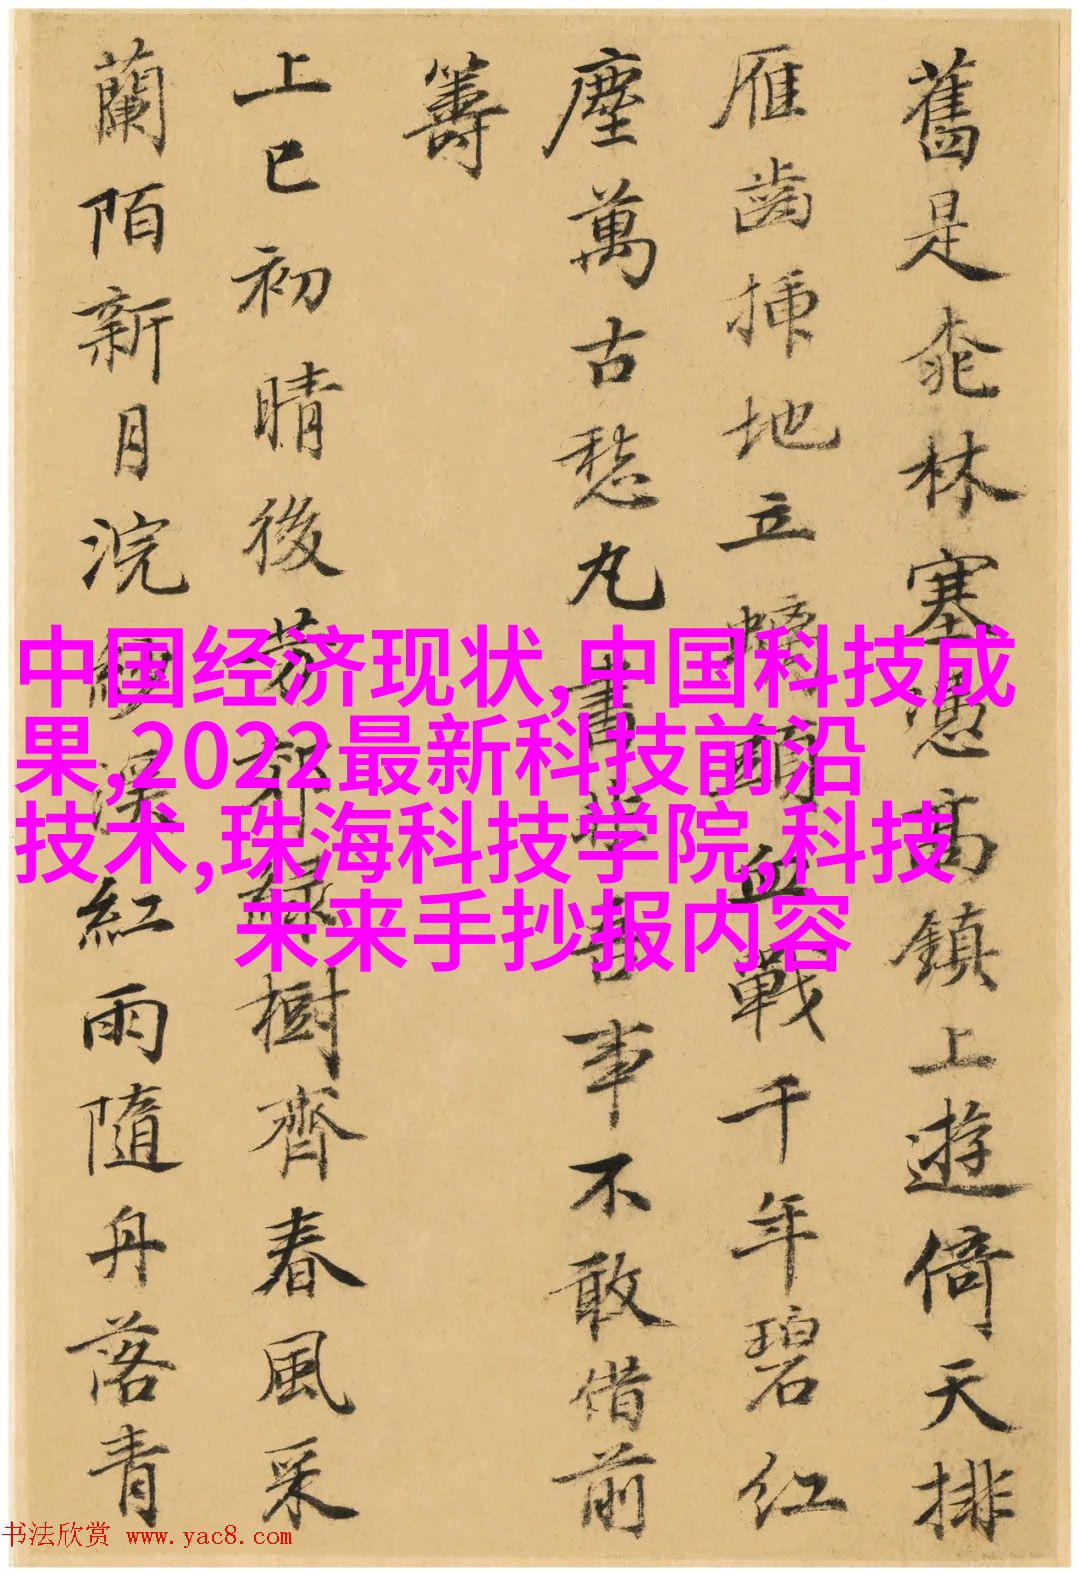 舊是桃林塞憑高鎮上遊倚天排
雁齒插地立螭頭血戰千年碧紅
塵萬古愁丸書生喜事不敢借前
籌
上巳初晴後芳郊綠樹齊春風采
蘭陌新月浣紗溪紅雨隨舟落青
中国经济现状,中国科技成
果,2022最新科技前沿
技术,珠海科技学院,科技
未来手抄报内容
书法欣赏 www.yac8.com